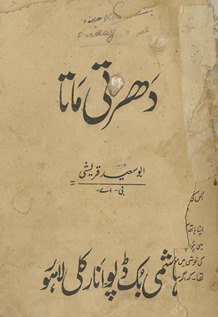 Friday
دھرتی ماتا
ابوسعید قریشی
بی - اے -
ہاشمی بک ڈپو انارکلی لاہور